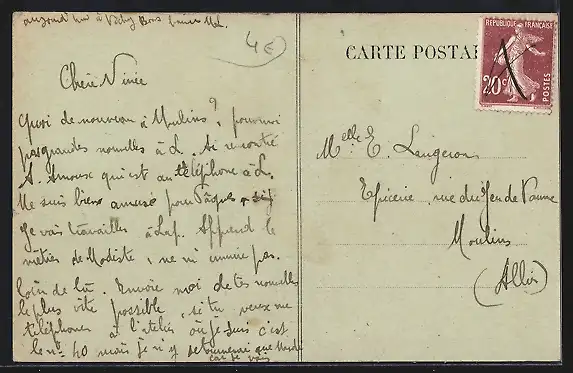 à Vichy Bons
4€
Chère Ninie
Quoi de nouveau à Moulins ?, pour moi
pas grandes nouvelles à L. Ai rencontré
A. Arnoux qui est au téléphone à L.
Me suis bien amusé pour Pâques
Je vais travailler à Lap. Apprend le
métier de Modiste, ne m'ennuie pas.
loin de là. Envoie moi de tes nouvelles
le plus vite possible, si tu veux me
téléphoner à l'atelier où je suis c'est
le no 40 mais je n'y retournerai que Mardi
car je vais
CARTE POSTA
REPUBLIQUE FRANÇAISE
20c
POSTES
Melle E. Laugerons
Epicerie, rue du Jeu de Paume
Moulins
(Allier)